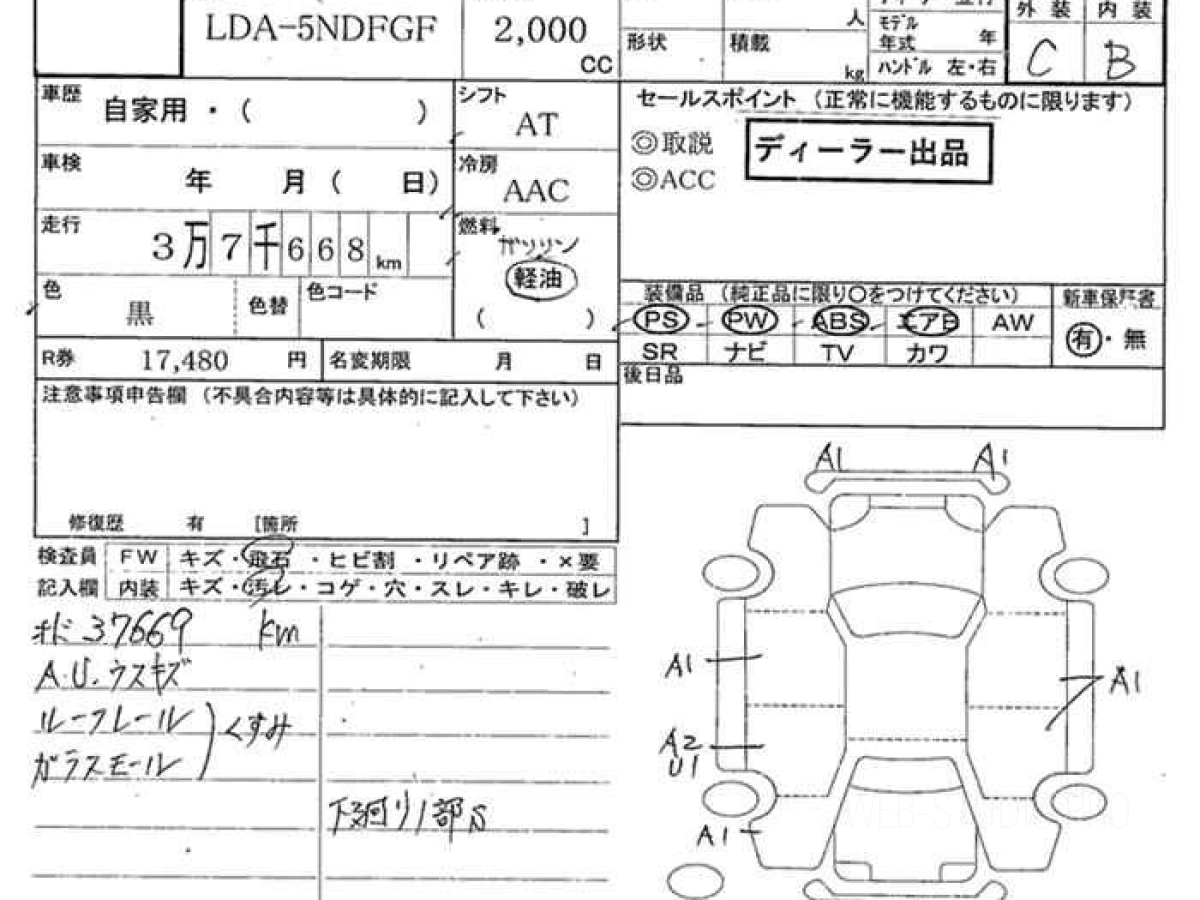 LDA-5NDFGF
2,000
CC
人
形状
積載
kg
モデル
年式
年
ハンドル 左・右
外装
内装
C
B
車歴
自家用・( )
シフト
AT
車検
年 月( 日)
冷房
AAC
走行
3万7千668km
燃料
ガソリン
軽油
( )
色
黒
色替
色コード
R券
17,480 円
名変期限 月 日
注意事項申告欄 (不具合内容等は具体的に記入して下さい)
修復歴 有 [箇所 ]
セールスポイント (正常に機能するものに限ります)
◎取説
◎ACC
ディーラー出品
装備品 (純正品に限り○をつけてください)
新車保証書
PS PW ABS エアB AW
SR ナビ TV カワ
有・無
後日品
検査員
記入欄
FW キズ・飛石・ヒビ割・リペア跡・×要
内装 キズ・汚レ・コゲ・穴・スレ・キレ・破レ
オド 37669 km
A.U.ウスキズ
ルーフレール
ガラスモール
くすみ
下廻り1部S
A1 A1
A1
A1
A2
U1
A1